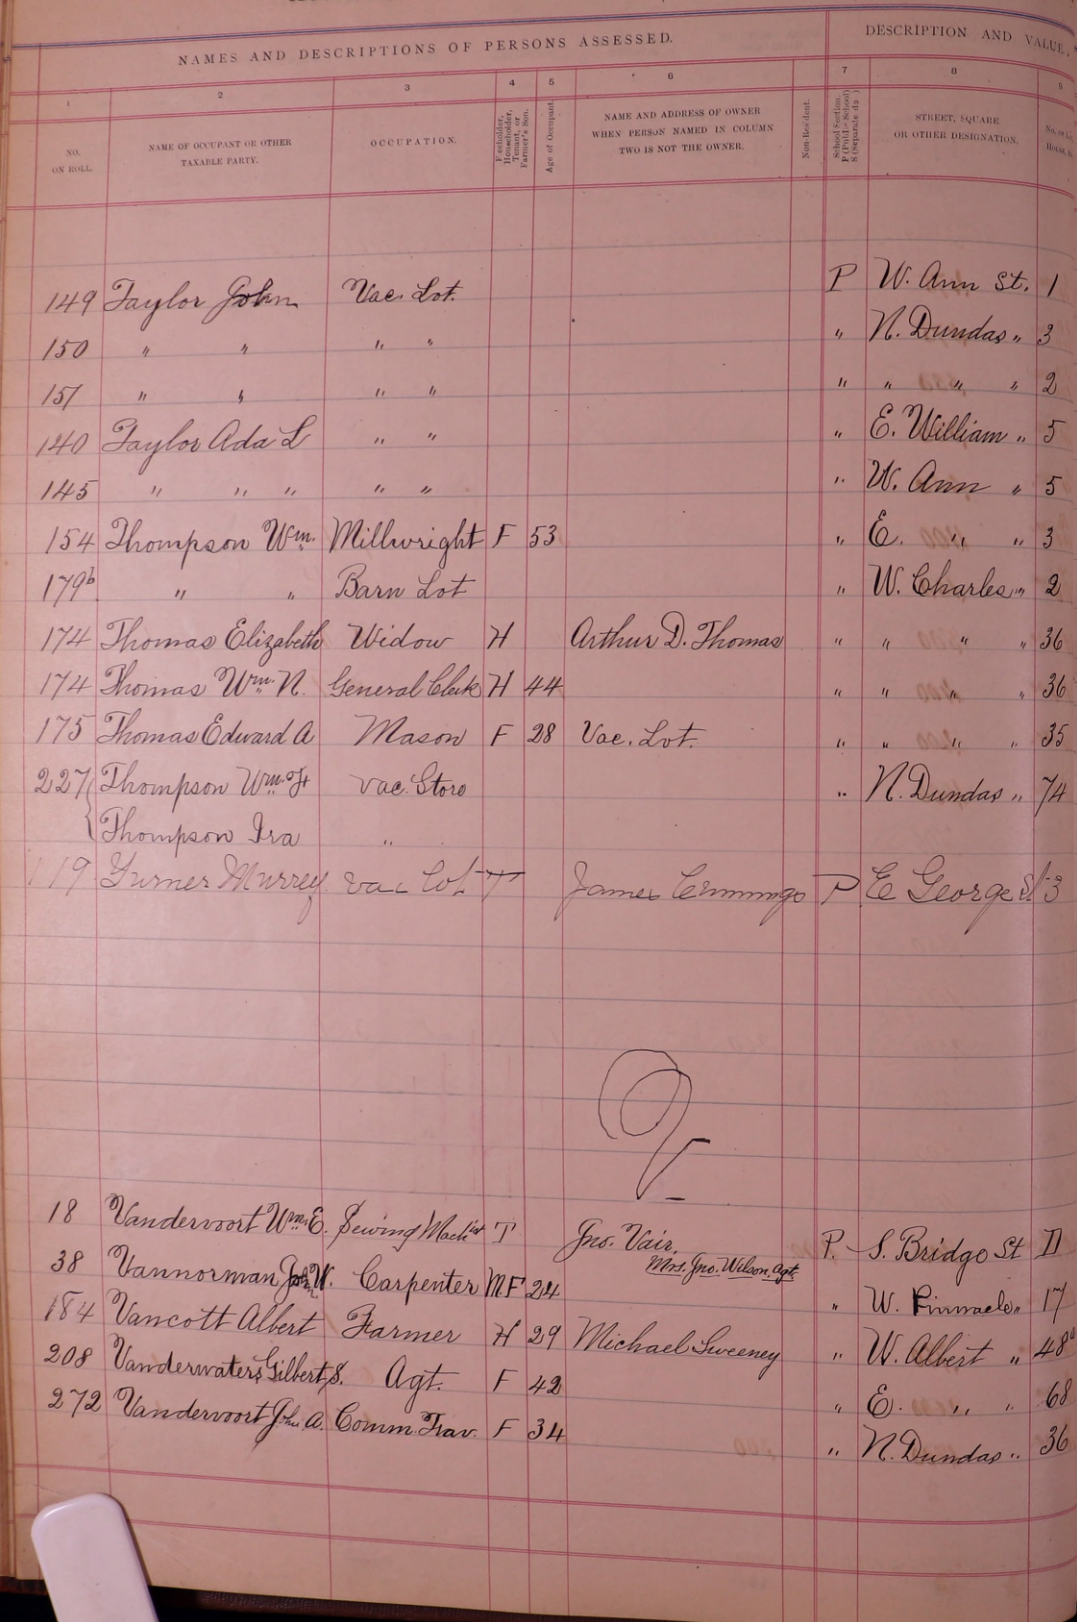 NAMES AND DESCRIPTIONS OF PERSONS ASSESSED. DESCRIPTION AND VALUE,
1 2 3 4 5 6 7 8 9
NO. ON ROLL. NAME OF OCCUPANT OR OTHER TAXABLE PARTY. OCCUPATION. Freeholder, Householder, Tenant, or Farmer's Son. Age of Occupant. NAME AND ADDRESS OF OWNER WHEN PERSON NAMED IN COLUMN TWO IS NOT THE OWNER. Non-Resident. School Section, P (Public School) S (Separate do.) STREET, SQUARE OR OTHER DESIGNATION. No. of Lot, House,
149 Taylor John Vac. Lot. P W. Ann St. 1
150 " " " " " N. Dundas " 3
151 " " " " " " " " 2
140 Taylor Ada L " " " E. William " 5
145 " " " " " " W. Ann " 5
154 Thompson Wm. Millwright F 53 " E. " " 3
179b " " Barn Lot " W. Charles " 2
174 Thomas Elizabeth Widow H Arthur D. Thomas " " " " 36
174 Thomas Wm. N. General Clerk H 44 " " " " 36
175 Thomas Edward A Mason F 28 Vac. Lot. " " " " 35
227 { Thompson Wm. H Vac. Store " N. Dundas " 74
{ Thompson Ira "
119 Turner Murrey Vac Lot T James Cummings P E George St 3
V
18 Vandervoort Wm. E. Sewing Mach ist T Jno. Vair. Mrs. Jno. Wilson, Agt. P. S. Bridge St D
38 Vannorman John W. Carpenter M.F 24 " W. Pinnacle " 17
184 Vancott Albert Farmer H 29 Michael Sweeney " W. Albert " 48a
208 Vanderwaters Gilbert S. Agt. F 42 " E. " " 68
272 Vandervoort John A. Comm. Trav. F 34 " N. Dundas " 36